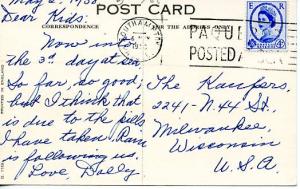 May 2, 1958
POST CARD
Dear Kids.
CORRESPONDENCE
Now into
the 3rd day at sea
So far, so good,
but I think that
is due to the pills
I have taken, Rain
is following us.
Love, Dolly
SOUTHAMPTON
PAQUE
POSTED A
The Kaupers
2241-N. 44 St,
Milwaukee,
Wisconsin
U.S.A.